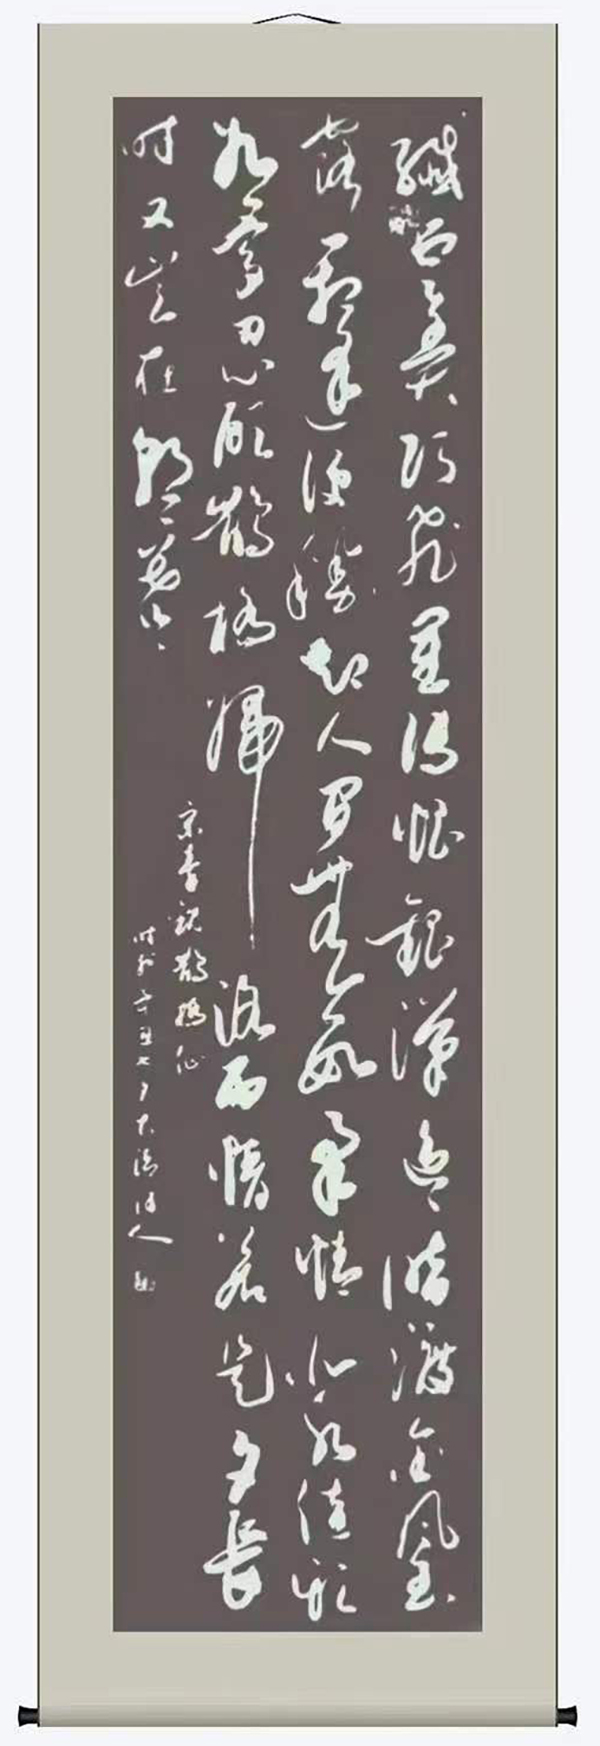 纖云弄巧飛星傳恨銀漢迢迢暗渡金風玉
露一相逢便勝却人間無數柔情似水佳期
如夢忍顧鵲橋歸路兩情若是久長
時又豈在朝朝暮暮
宋秦觀鵲橋仙
時於辛丑七夕